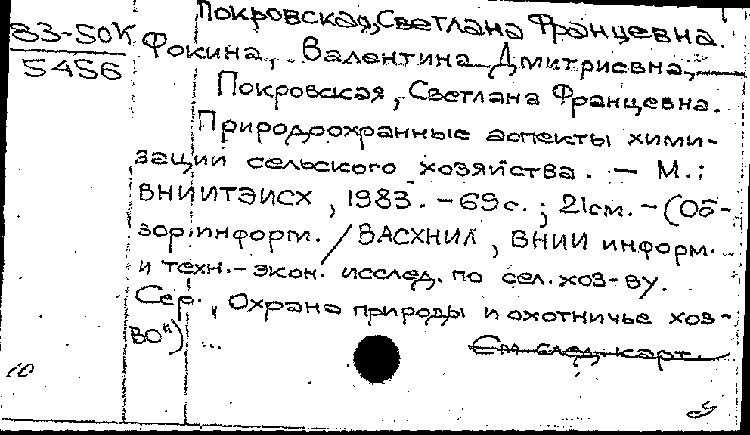 Покровская, Светлана Францевна.
83-50К
5456
Фокина, Валентина Дмитриевна,
Покровская, Светлана Францевна.
Природоохранные аспекты хими-
зации сельского хозяйства. — М.:
ВНИИТЭИСХ, 1983. - 69с.; 21см. - (Об-
зор. информ. / ВАСХНИЛ, ВНИИ информ.
и техн.-экон. исслед. по сел. хоз-ву.
Сер., Охрана природы и охотничье хоз-
во") ...
См. след. карт.
10